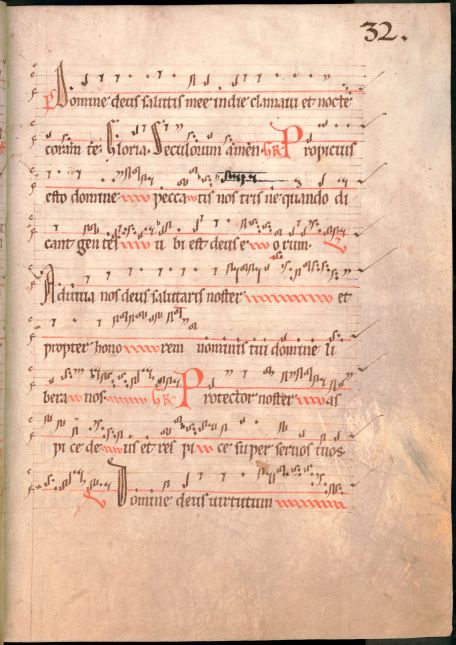 32.
Domine deus salutis mee in die clamaui et nocte
coram te. Gloria. Seculorum amen. GR Propicius
esto domine peccatis nostris ne quando di
cant gentes ubi est deus eorum. V
Adiuua nos deus salutaris noster et
propter honorem nominis tui domine li
bera nos. GR Protector noster as
pice deus et respice super seruos tuos.
V Domine deus uirtutum